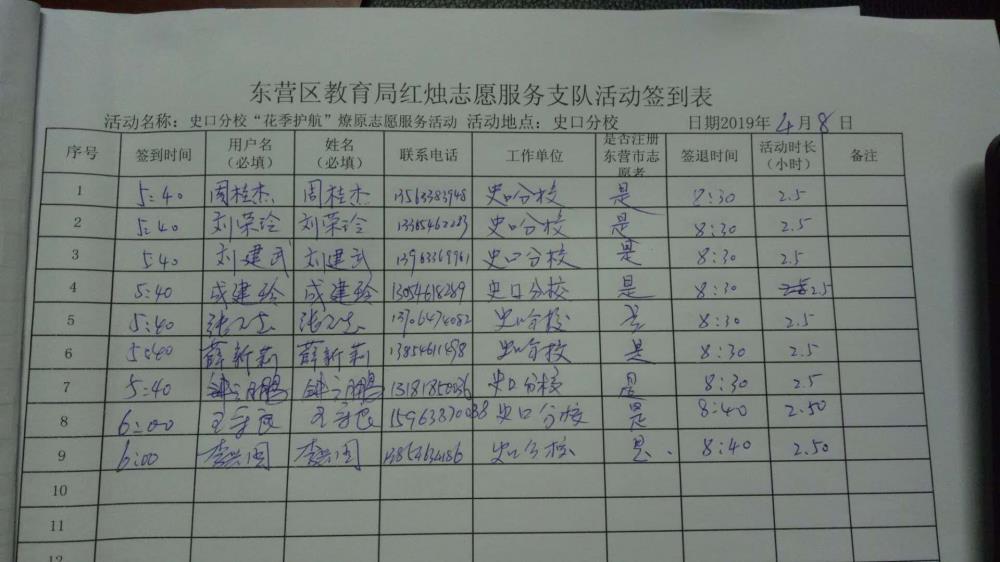 东营区教育局红烛志愿服务支队活动签到表
活动名称：史口分校“花季护航”燎原志愿服务活动 活动地点：史口分校 日期2019年 4 月 8 日
序号 签到时间 用户名（必填） 姓名（必填） 联系电话 工作单位 是否注册东营市志愿者 签退时间 活动时长（小时） 备注
1 5:40 周桂杰 周桂杰 13563383948 史口分校 是 8:30 2.5
2 5:40 刘荣玲 刘荣玲 史口分校 是 8:30 2.5
3 5:40 刘建武 刘建武 13963369961 史口分校 是 8:30 2.5
4 5:40 成建玲 成建玲 13054618289 史口分校 是 8:30 2.5
5 5:40 13706474082 史口分校 是 8:30 2.5
6 5:40 薛新莉 薛新莉 13854611498 史口分校 是 8:30 2.5
7 5:40 史口分校 是 8:30 2.5
8 6:00 15963870038 史口分校 是 8:40 2.50
9 6:00 13854634186 史口分校 是 8:40 2.50
10
11
12